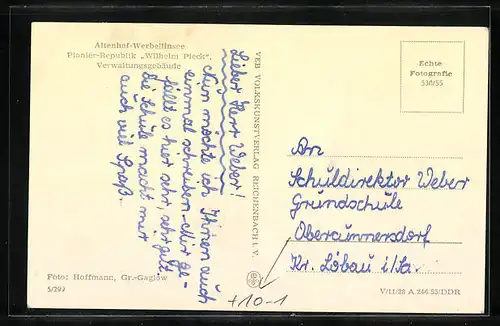 Altenhof-Werbellinsee
Pionier-Republik „Wilhelm Pieck“,
Verwaltungsgebäude
Lieber Herr Weber!
Nun möchte ich Ihnen auch
einmal schreiben. Mir ge-
fällt es hier sehr, sehr gut.
Die Schule macht mir
auch viel Spaß.
VEB VOLKSKUNSTVERLAG REICHENBACH I. V.
Echte
Fotografie
538/55
An
Schuldirektor Weber
Grundschule
Obercunnersdorf
Kr. Löbau i/Sa.
Foto: Hoffmann, Gr.-Gaglow
5/292
+10-1
V/11/28 A 266/55/DDR